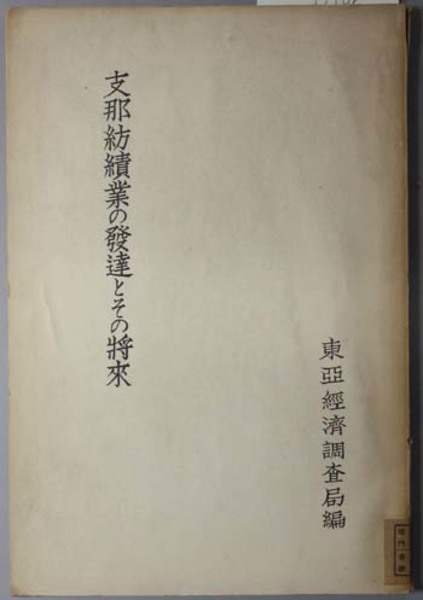 支那紡績業の發達とその將來
東亞經濟調査局編